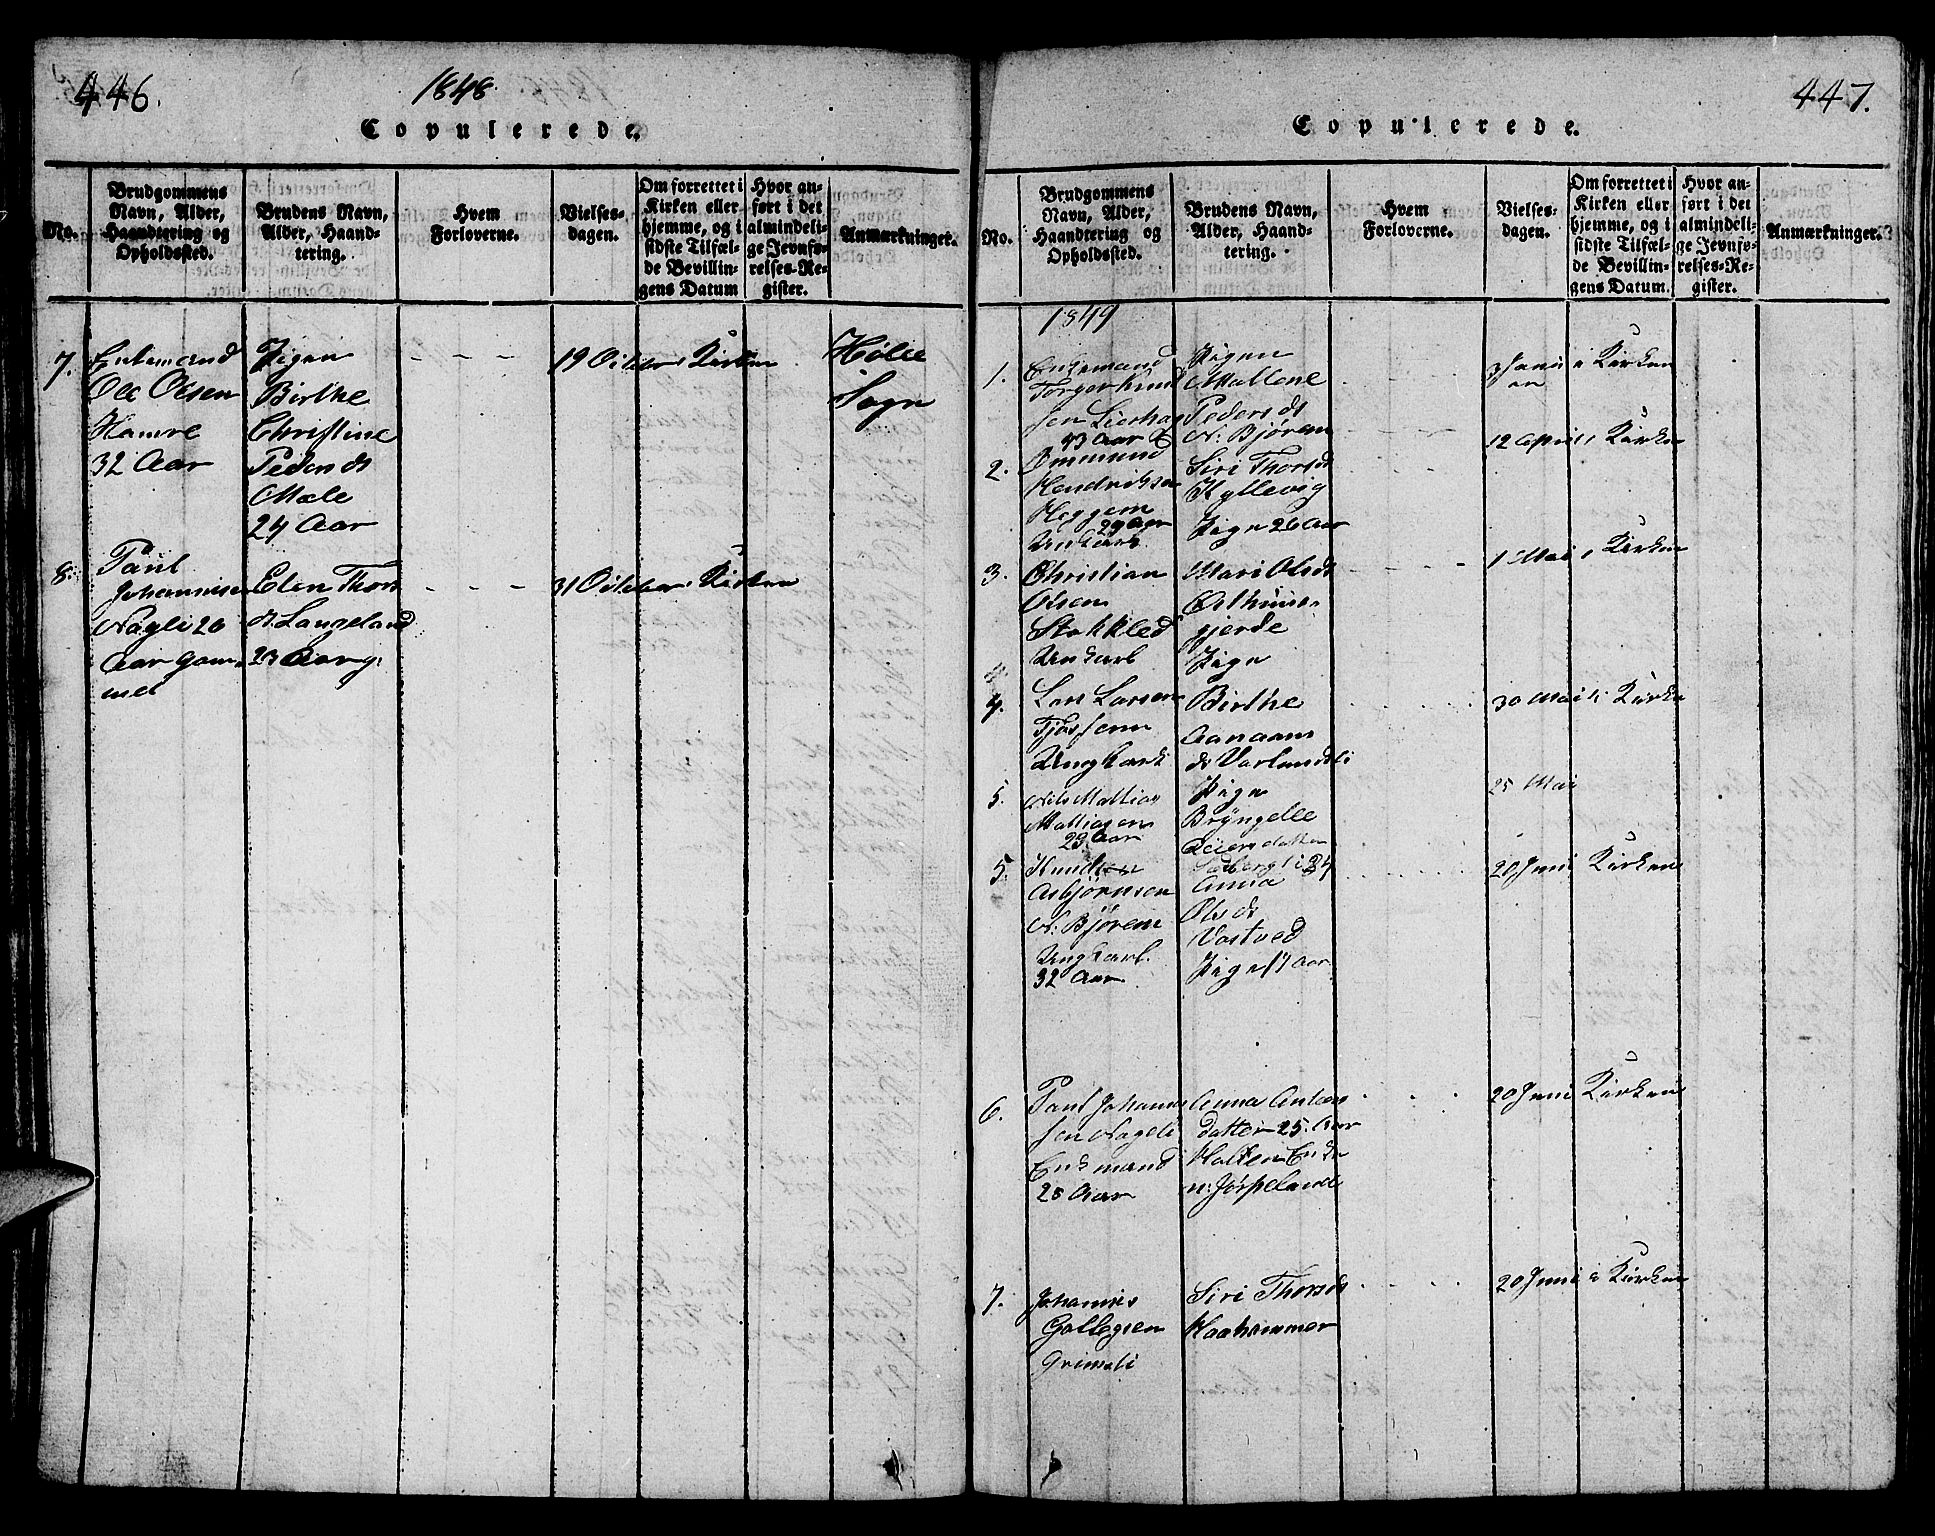 446.
1848
Copulerede.
No.
Brudgommens Navn, Alder, Haandtering og Opholdssted.
Brudens Navn, Alder, Haandtering.
Hvem Forloverne.
Vielsesdagen.
Om forrettet i Kirken eller hjemme, og i sidste Tilfælde Bevillingens Datum
Hvor anført i det almindelige Jevnførelses-Register.
Anmærkninger.
7.
Enkemand
Ole Olsen
Hamre
32 Aar
Pigen
Birthe
Christine
Pedersdt
Mæle
24 Aar
19 October i Kirken
Hølle
Sogn
8.
Paul
Johannesen
Nagli 26
Aar gam-
mel
Elen Thors
dt Langeland
23 Aar g.
31 October i Kirken
447.
Copulerede.
No.
Brudgommens Navn, Alder, Haandtering og Opholdssted.
Brudens Navn, Alder, Haandtering.
Hvem Forloverne.
Vielsesdagen.
Om forrettet i Kirken eller hjemme, og i sidste Tilfælde Bevillingens Datum.
Hvor anført i det almindelige Jevnførelses-Register.
Anmærkninger.
1849
1.
Enkemand
Torger Knud
sen Lierhag
43 Aar
Pigen
Mallene
Pedersdt
N: Bjøreim
3 Janu
ar
i Kirken
2.
Ommund
Hendriksen
Heggem
29 Aar
Unkarl
Siri Thorsd
Kyllevig
Pige 26 Aar
12 April i Kirken
3.
Christian
Olsen
Stokkled
Unkarl
Mari Olsdt
Østhuus-
gjerde
Pige
1 Mai i Kirken
4.
Lars Larsen
Tjøs
Ungkarl
Birthe
Aanaans
dt Vorlandsli
30 Mai i Kirken
5.
Nils Mattias
Mattiasen
23 Aar
Pige
Bryngelle
Peiersdatter
24
25 Mai
5.
Knud
Asbjørnsen
N: Bjøreim
Ungkarl
32 Aar
Anna
Olsdt
Vostved
Pige
Aar
20 Juni i Kirken
6.
Paul Johannes
sen Nageli
Enkemand
28 Aar
Anna Anders
datter 25 Aar
Halten Enke
n: Jørpeland
20 Juni i Kirken
7.
Johannes
Gollegsen
Grimsli
Siri Thorsdt
Kaahammer
20 Juni i Kirken